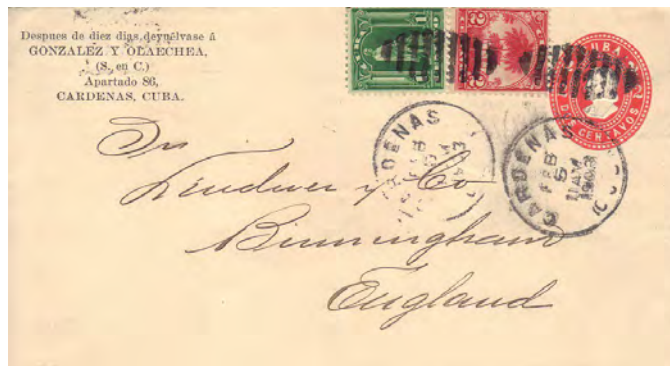 Despues de diez dias, devuélvase á
GONZALEZ Y OLAECHEA,
(S. en C.)
Apartado 86,
CARDENAS, CUBA.
1
2
CUBA
DOS CENTAVOS
CARDENAS
FEB
5
CARDENAS
FEB
5
11 AM
1903
y Co
Birmingham
England